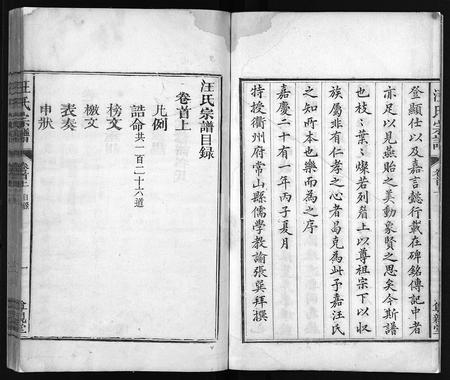 登顯仕以及嘉言懿行載在碑銘傳記中者
亦足以見燕貽之美動象賢之思矣今斯譜
也枝〻葉〻燦若列眉上以尊祖宗下以收
族屬非有仁孝之心者曷克為此予嘉汪氏
之知所本也樂而為之序
嘉慶二十有一年丙子夏月
特授衢州府常山縣儒學教諭張巽拜撰
汪氏宗譜目錄
卷首上
凡例
誥命共一百二十六道
榜文
檄文
表奏
申狀
汪氏宗譜
卷首上
目錄
一